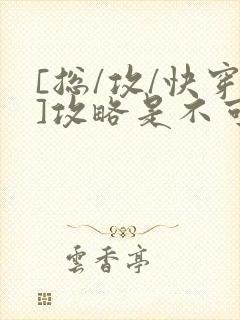 [总/攻/快穿
]攻略是不可
雲香亭